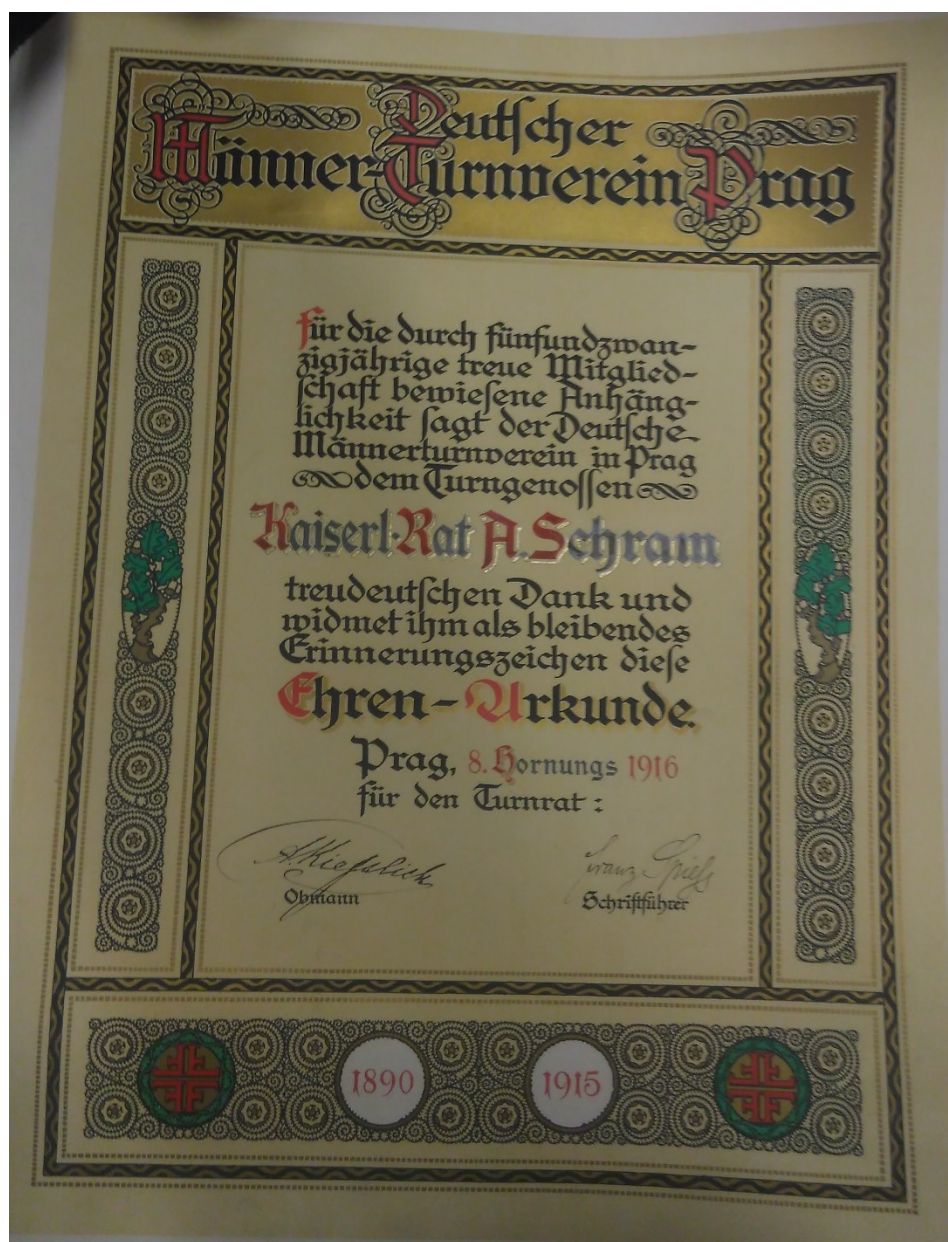 Deutscher
Männer-Turnverein Prag
für die durch fünfundzwan-
zigjährige treue Mitglied-
schaft bewiesene Anhäng-
lichkeit sagt der Deutsche
Männerturnverein in Prag
dem Turngenossen
Kaiserl. Rat A. Schram
treudeutschen Dank und
widmet ihm als bleibendes
Erinnerungszeichen diese
Ehren-Urkunde.
Prag, 8. Hornungs 1916
für den Turnrat:
Franz Spiess
Obmann
Schriftführer
1890
1915